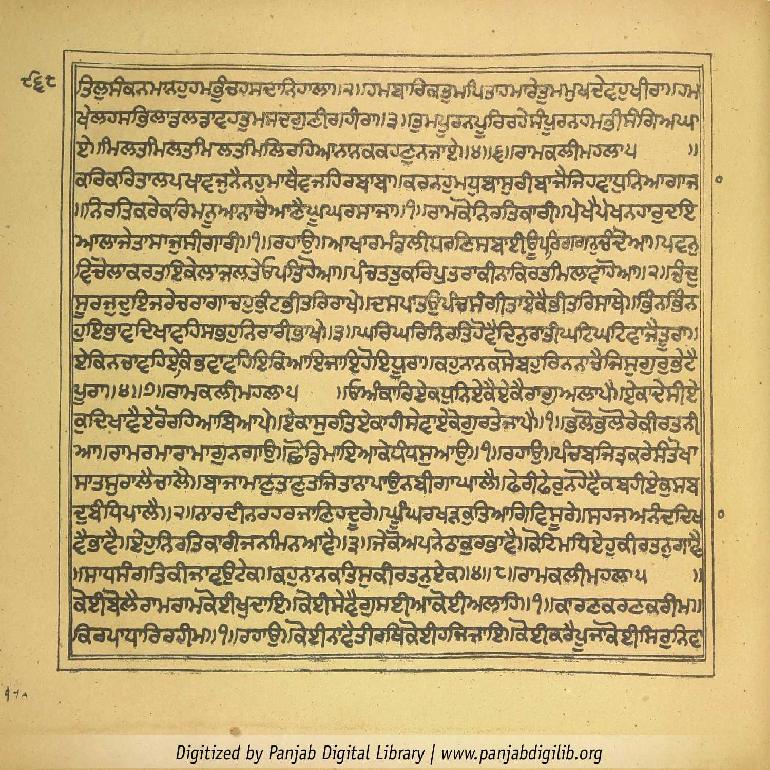 ੮੬੮
ਤਿਲੁਸੰਕਨਮਾਨਹੁਹਮਭੂੰਚਹਸਦਾਨਿਹਾਲਾ॥੨॥ਹਮਬਾਰਿਕਤੁਮਪਿਤਾਹਮਾਰੇਤੁਮਮੁਖਦੇਵਹੁਖੀਰਾ॥ਹਮ
ਖੇਲਹਸਭਿਲਾਡਲਡਾਵਹਤੁਮਸਦਗੁਣੀਗਹੀਰਾ॥੩॥ਤੁਮਪੂਰਨਪੂਰਿਰਹੇਸੰਪੂਰਨਹਮਭੀਸੰਗਿਅਘਾ
ਏ॥ਮਿਲਤਮਿਲਤਮਿਲਤਮਿਲਿਰਹਿਆਨਾਨਕਕਹਣੁਨਜਾਏ॥੪॥੬॥ਰਾਮਕਲੀਮਹਲਾ੫ ॥
ਕਰਿਕਰਿਤਾਲਪਖਾਵਜੁਨੈਨਹੁਮਾਥੈਵਜਹਿਰਬਾਬਾ॥ਕਰਨਹੁਮਧੁਬਾਸੁਰੀਬਾਜੈਜਿਹਵਾਧੁਨਿਆਗਾਜਾ
॥ਨਿਰਤਿਕਰੇਕਰਿਮਨੂਆਨਾਚੈਆਣੈਘੂਘਰਸਾਜਾ॥੧॥ਰਾਮਕੋਨਿਰਤਿਕਾਰੀ॥ਪੇਖੈਪੇਖਨਹਾਰੁਦਇ
ਆਲਾਜੇਤਾਸਾਜੁਸੀਗਾਰੀ॥੧॥ਰਹਾਉ॥ਆਖਾਰਮੰਡਲੀਧਰਣਿਸਬਾਈਊਪਰਿਗਗਨੁਚੰਦੋਆ॥ਪਵਨੁ
ਵਿਚੋਲਾਕਰਤਾਇਕੇਲਾਜਲਤੇਓਪਤਿਹੋਆ॥ਪੰਚਤਤੁਕਰਿਪੁਤਰਾਕੀਨਾਕਿਰਤਮਿਲਾਵਾਹੋਆ॥੨॥ਚੰਦੁ
ਸੂਰਜੁਦੁਇਜਰੇਚਰਾਗਾਚਹੁਕੁੰਟਭੀਤਰਿਰਾਖੇ॥ਦਸਪਾਤਉਪੰਚਸੰਗੀਤਾਏਕੈਭੀਤਰਿਸਾਥੇ॥ਭਿੰਨਭਿੰਨ
ਹੁਇਭਾਵਦਿਖਾਵਹਿਸਭਹੁਨਿਰਾਰੀਭਾਖੇ॥੩॥ਘਰਿਘਰਿਨਿਰਤਿਹੋਵੈਦਿਨੁਰਾਤੀਘਟਿਘਟਿਵਾਜੈਤੂਰਾ॥
ਏਕਿਨਚਾਵਹਿਏਕਿਭਵਾਵਹਿਇਕਿਆਇਜਾਇਹੋਇਧੂਰਾ॥ਕਹੁਨਾਨਕਸੋਬਹੁਰਿਨਨਾਚੈਜਿਸੁਗੁਰੁਭੇਟੈ
ਪੂਰਾ॥੪॥੭॥ਰਾਮਕਲੀਮਹਲਾ੫ ॥ਓਅੰਕਾਰਿਏਕਧੁਨਿਏਕੈਏਕੈਰਾਗੁਅਲਾਪੈ॥ਏਕਾਦੇਸੀਏ
ਕੁਦਿਖਾਵੈਏਕੋਰਹਿਆਬਿਆਪੈ॥ਏਕਾਸੁਰਤਿਏਕਾਹੀਸੇਵਾਏਕੋਗੁਰਤੇਜਾਪੈ॥੧॥ਭਲੋਭਲੋਰੇਕੀਰਤਨੀ
ਆ॥ਰਾਮਰਮਾਰਾਮਾਗੁਨਗਾਉ॥ਛੋਡਿਮਾਇਆਕੇਧੰਧਸੁਆਉ॥੧॥ਰਹਾਉ॥ਪੰਚਬਜਿਤ੍ਰਕਰੇਸੰਤੋਖਾ
ਸਾਤਸੁਰਾਲੈਚਾਲੈ॥ਬਾਜਾਮਾਣੁਤਾਣੁਤਜਿਤਾਨਾਪਾਉਨਬੀਗਾਘਾਲੈ॥ਫੇਰੀਫੇਰੁਨਹੋਵੈਕਬਹੀਏਕੁਸਬ
ਦੁਬੰਧਿਪਾਲੈ॥੨॥ਨਾਰਦੀਨਰਹਰਜਾਣਿਹਦੂਰੇ॥ਘੂੰਘਰਖੜਕੁਤਿਆਗਿਵਿਸੂਰੇ॥ਸਹਜਅਨੰਦਦਿਖਾ
ਵੈਭਾਵੈ॥ਏਹੁਨਿਰਤਿਕਾਰੀਜਨਮਿਨਆਵੈ॥੩॥ਜੇਕੋਅਪਨੇਠਾਕੁਰਭਾਵੈ॥ਕੋਟਿਮਧਿਏਹੁਕੀਰਤਨੁਗਾਵੈ
॥ਸਾਧਸੰਗਤਿਕੀਜਾਵਉਟੇਕ॥ਕਹੁਨਾਨਕਤਿਸੁਕੀਰਤਨੁਏਕ॥੪॥੮॥ਰਾਮਕਲੀਮਹਲਾ੫ ॥
ਕੋਈਬੋਲੈਰਾਮਰਾਮਕੋਈਖੁਦਾਇ॥ਕੋਈਸੇਵੈਗੁਸਈਆਕੋਈਅਲਾਹਿ॥੧॥ਕਾਰਣਕਰਣਕਰੀਮ॥
ਕਿਰਪਾਧਾਰਿਰਹੀਮ॥੧॥ਰਹਾਉ॥ਕੋਈਨਾਵੈਤੀਰਥਿਕੋਈਹਜਿਜਾਇ॥ਕੋਈਕਰੈਪੂਜਾਕੋਈਸਿਰੁਨਿਵਾ
Digitized by Panjab Digital Library | www.panjabdigilib.org